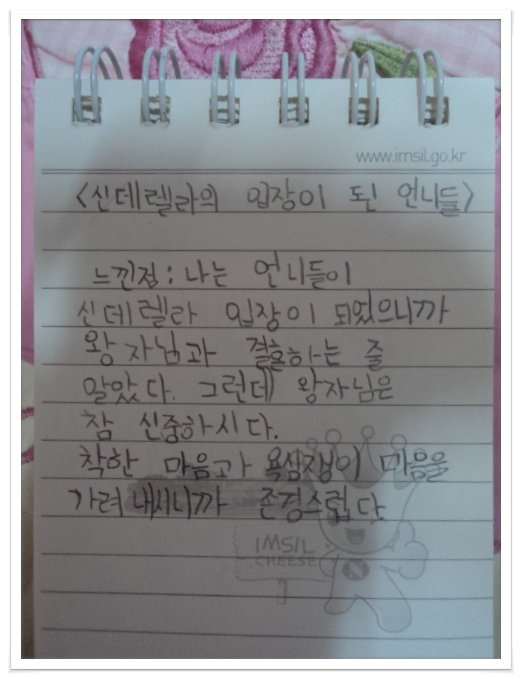 www.imsil.go.kr
<신데렐라의 입장이 된 언니들>
느낀점 : 나는 언니들이
신데렐라 입장이 되었으니까
왕자님과 결혼하는 줄
알았다. 그런데 왕자님은
참 신중하시다.
착한 마음과 욕심쟁이 마음을
가려내시니까 존경스럽다.
IMSIL
CHEESE